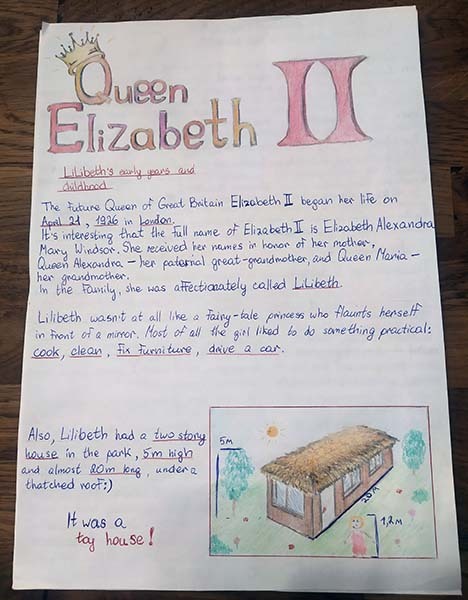 Queen
Elizabeth II
Lilibeth's early years and
childhood
The future Queen of Great Britain Elizabeth II began her life on
April 21, 1926 in London.
It's interesting that the full name of Elizabeth II is Elizabeth Alexandra
Mary Windsor. She received her names in honor of her mother,
Queen Alexandra – her paternal great-grandmother, and Queen Maria –
her grandmother.
In the family, she was affectionately called Lilibeth.
Lilibeth wasn't at all like a fairy-tale princess who flaunts herself
in front of a mirror. Most of all the girl liked to do something practical:
cook, clean, fix furniture, drive a car.
Also, Lilibeth had a two story
house in the park, 5m high
and almost 20m long, under a
thatched roof:)
It was a
toy house!
5м
20м
1,2м